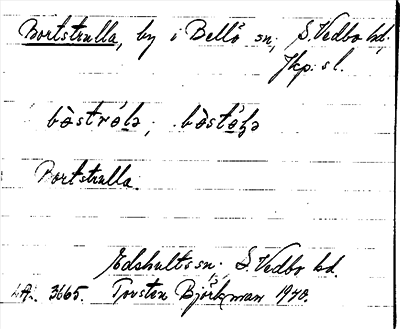 Bortstrulla, by i Bellö sn, S. Vedbo hd.
Jkp. sl.
Bortstrulla.
Edshults sn, S. Vedbo hd.
3665. Torsten Björkman 1940.